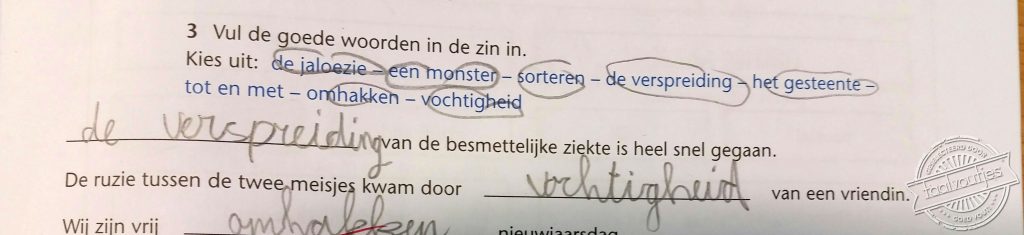 3 Vul de goede woorden in de zin in.
Kies uit: de jaloezie – een monster – sorteren – de verspreiding – het gesteente –
tot en met – omhakken – vochtigheid
de verspreiding van de besmettelijke ziekte is heel snel gegaan.
De ruzie tussen de twee meisjes kwam door vochtigheid van een vriendin.
Wij zijn vrij omhakken nieuwjaarsdag
taalvoutjes